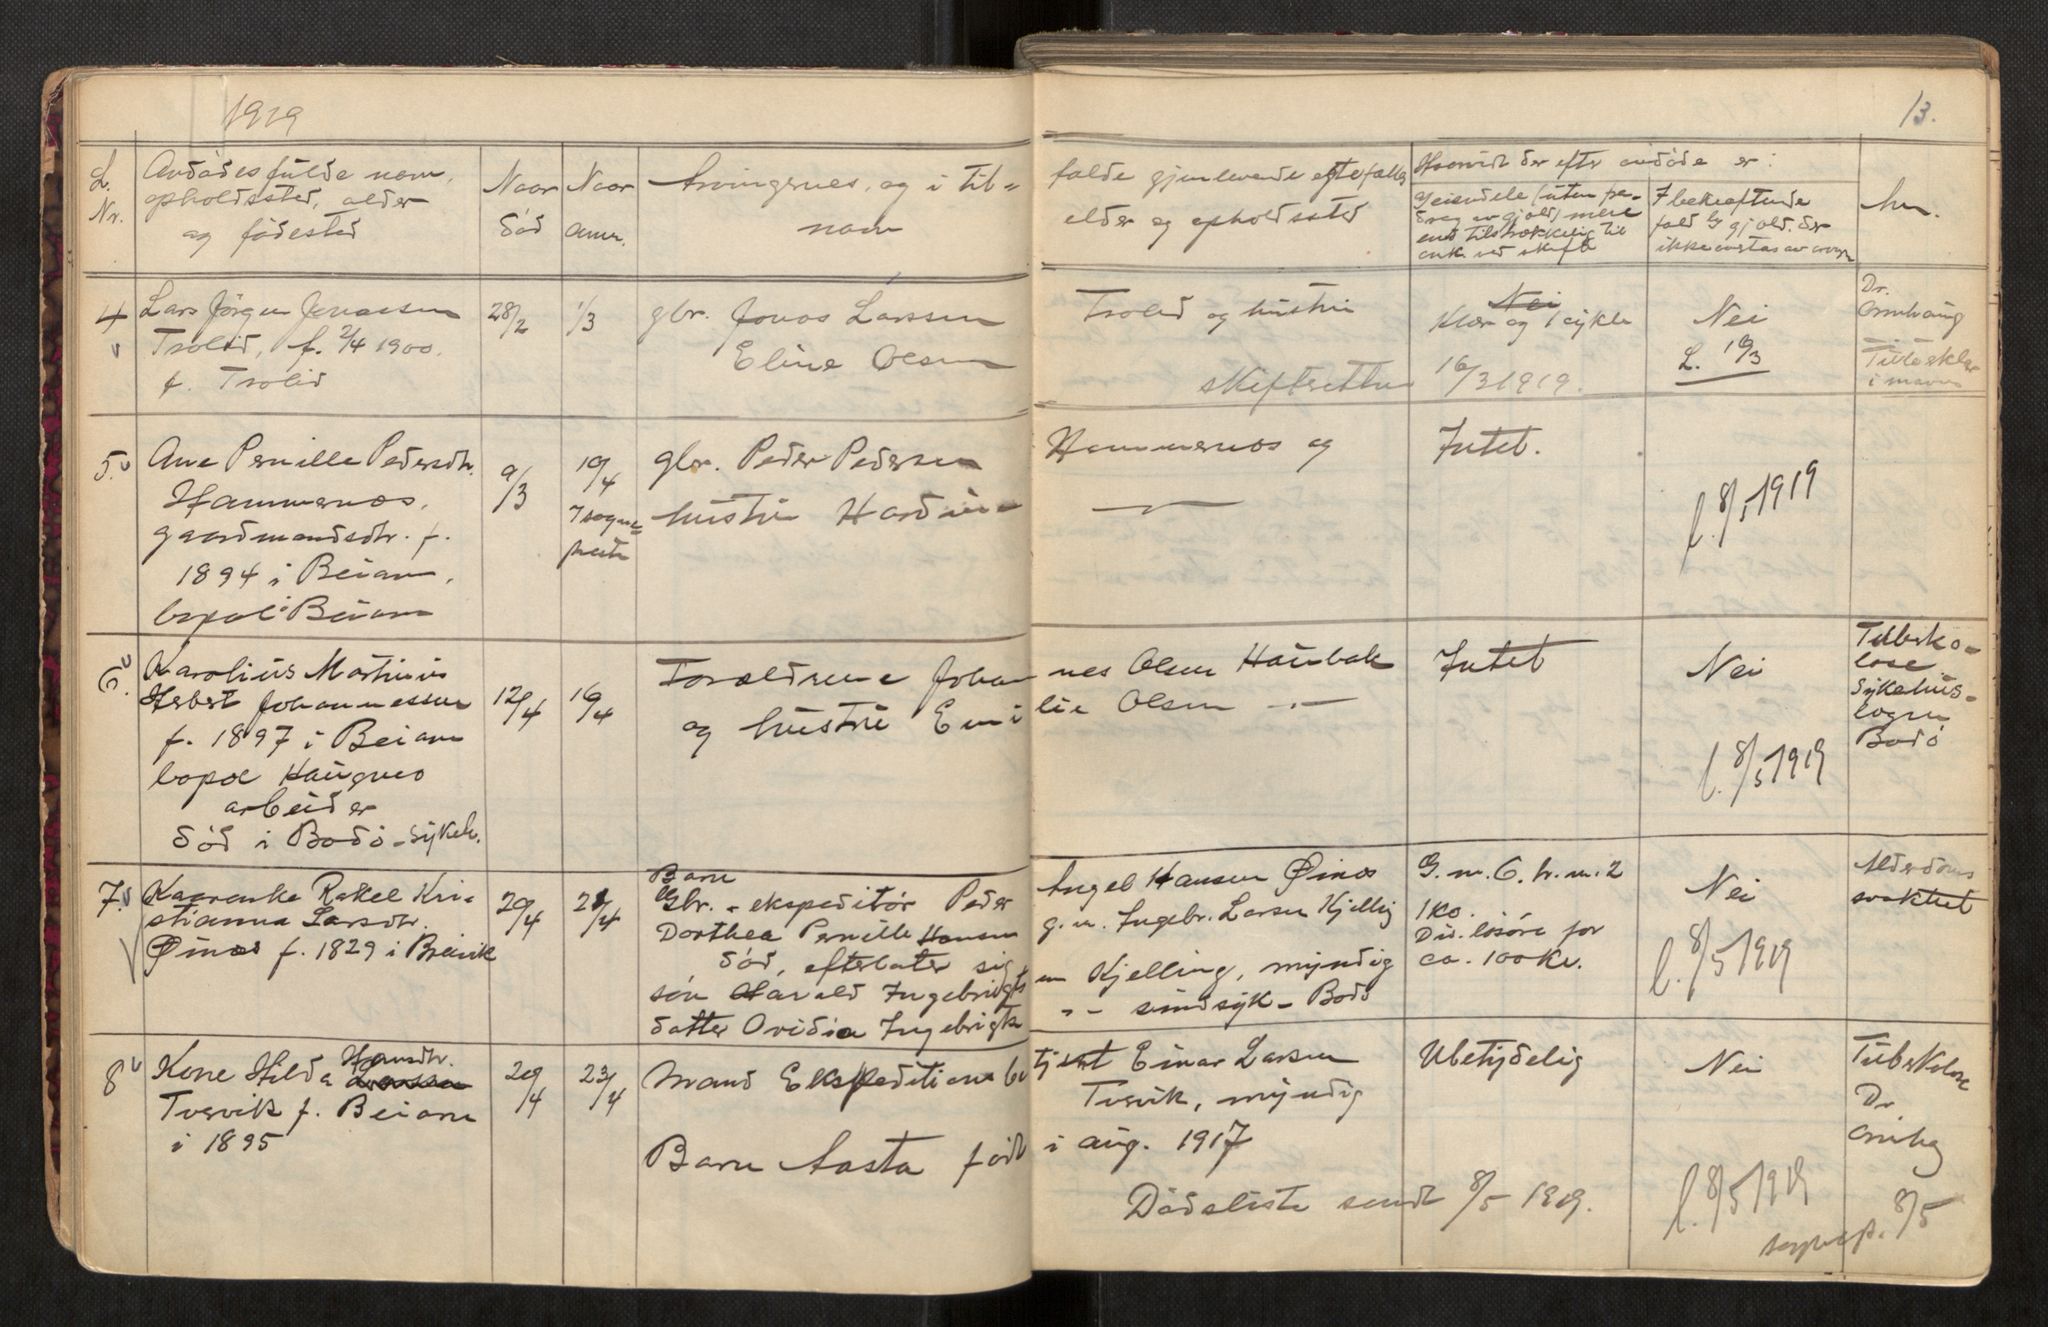 1919
13.
L. Nr.
Avdødes fulde navn,
opholdssted, alder
og fødested
Naar
død
Naar
anm.
Arvingernes, og i til-
navn
fælde gjenlevende egtefælles
alder og opholdssted
Hvorvidt der efter avdøde er:
Jeiendele (uten fra-
drag av gjæld) mere
end tilstrækkelig til
omk. ved skifte
I bekræftende
fald og gjæld. der
ikke overtas av arving
4
Lars Jørgen Jonassen
Trolid, f. 2/4 1900.
f. Trolid
28/2
1/3
gbr. Jonas Larssen
Eline Olsen
Trolid og hustru
skifteretten
Nei
Klær og 1 cykle
16/3 1919.
Nei
L. 16/3
Dr.
5.
Ane Pernille Pedersdtr.
Hammernes,
gaardmandsdtr. f.
1894 i Beiarn,
bopæl: Beiarn
9/3
19/4
gbr. Peder Pedersen
hustru Hardine
Hammernes og
— " —
Intet.
l. 8/5 1919
6.
Karolius Martinus
Herbert Johannessen
f. 1897 i Beiarn
bopæl Haugnes
arbeider
død i Bodø - sykeh.
12/4
16/4
Forældrene Johan
og hustru Emi
nes Olsen Haubak
lie Olsen — " —
Intet
Nei
l. 8/5 1919
Tuberko-
lose
Sykehus-
lægen
Bodø
7.
Kaarenke Rakel Kri-
stianna Larsdtr.
Øinæs f. 1829 i Beiarn
20/4
21/4
Barn
Gbr. - ekspeditør Peder
Dorthea Pernille Hansen
død, efterlater sig
søn Harald Ingebrigts
datter Ovidia Ingebrigts
Angel Hansen Øines
g. m. Ingebr. Larsen Kjelling
en Kjelling, myndig
" - sindsyk - Bodø
G. nr. 6. br. nr. 2
1 ko.
Div. løsøre for
ca. 100 kr.
Nei
l. 8/5 1919
Alderdoms
svakhet
8
Kone Hilda Hansdtr.
Tvervik f. Beiarn
i 1895
20/4
23/4
Mand Ekspeditionsbe
Barn Aasta født
tjent Einar Larsen
Tvervik, myndig
i aug. 1917
Dødsliste sendt 8/5 1919.
Ubetydelig
Nei
l. 8/5 1919
Tuberkelose
Dr.
8/5